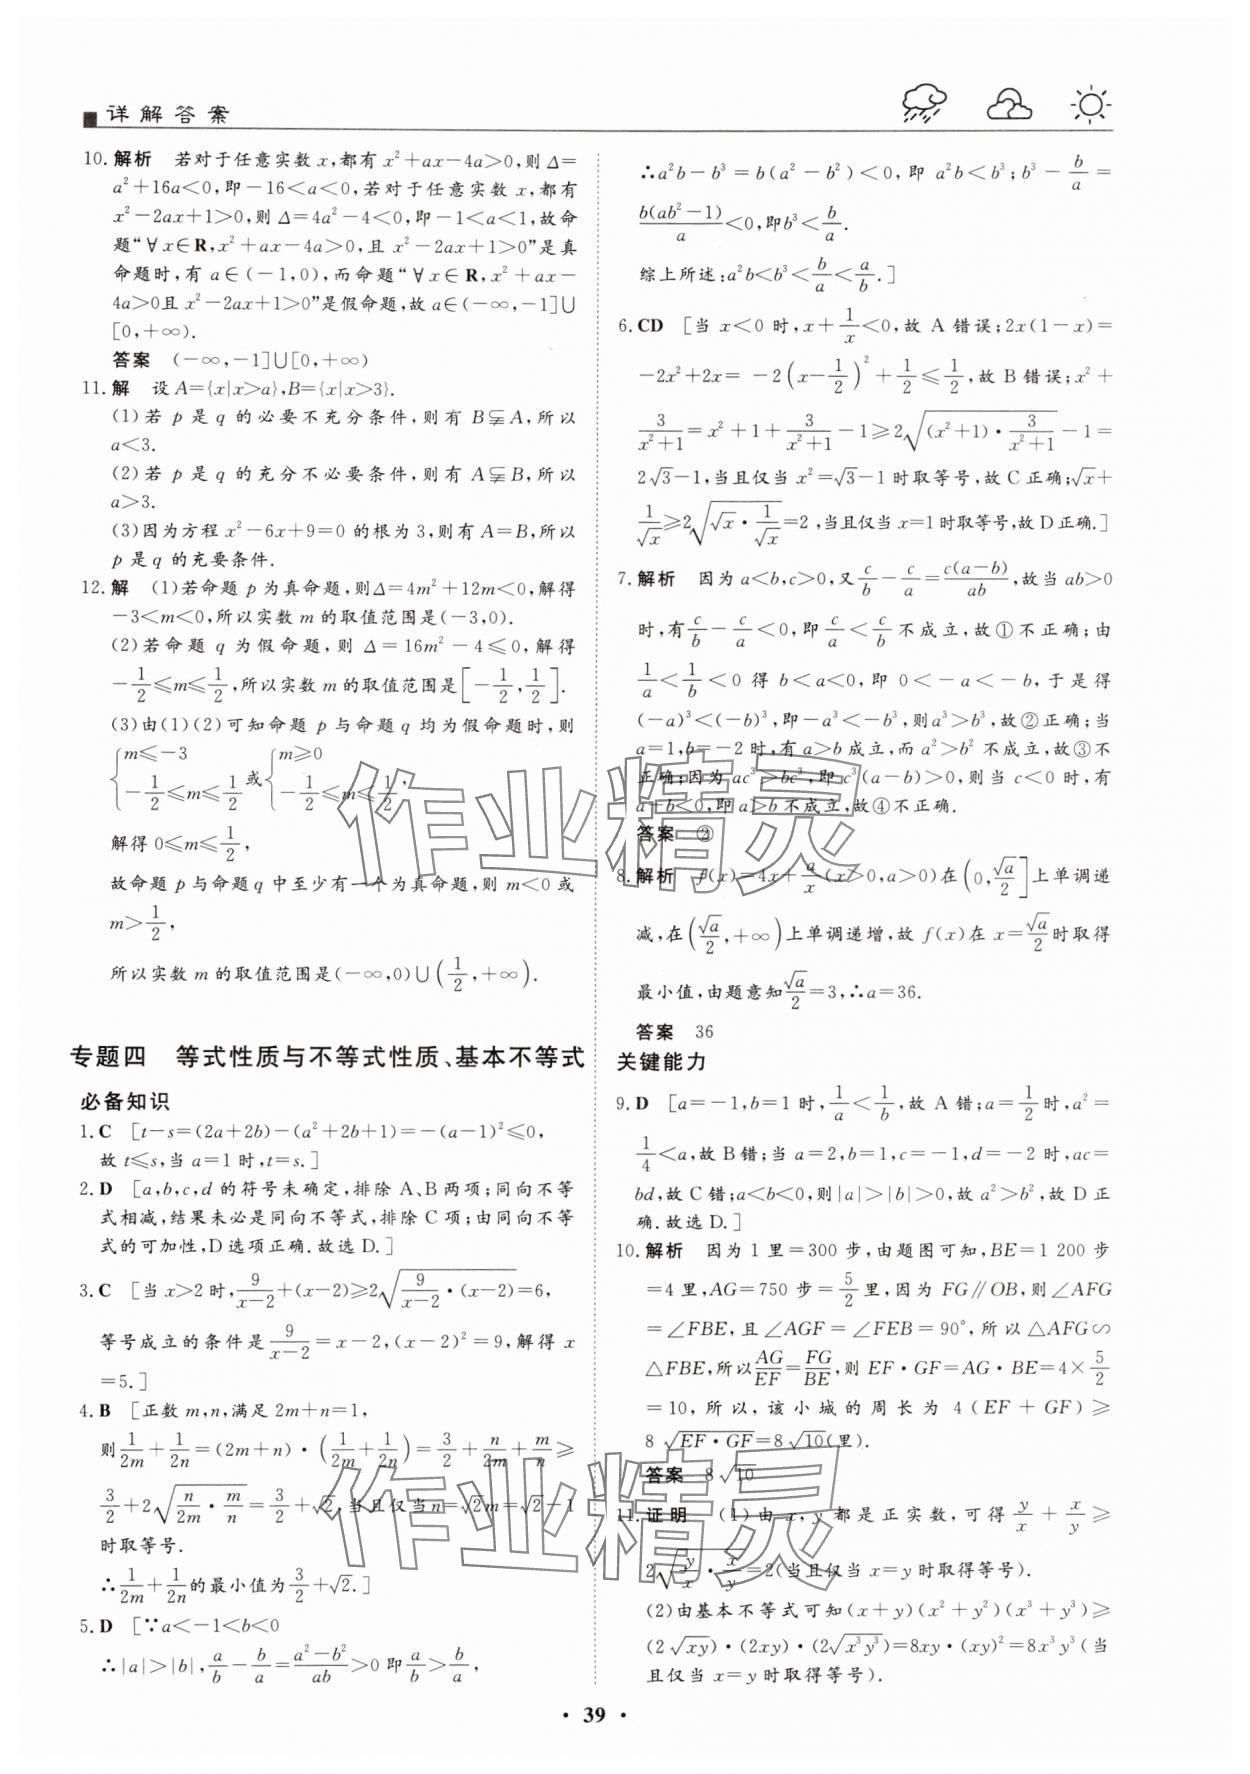 详解答案
10. 解析　若对于任意实数 x,都有 x²+ax-4a>0,则 Δ=
a²+16a<0,即-16<a<0,若对于任意实数 x,都有
x²-2ax+1>0,则 Δ=4a²-4<0,即-1<a<1,故命
题“∀x∈R,x²+ax-4a>0,且 x²-2ax+1>0”是真
命题时,有 a∈(-1,0),而命题“∀x∈R,x²+ax-
4a>0且 x²-2ax+1>0”是假命题,故 a∈(-∞,-1]∪
[0,+∞).
答案　(-∞,-1]∪[0,+∞)
11. 解　设 A={x|x>a},B={x|x>3}.
(1)若 p 是 q 的必要不充分条件,则有 B⫋A,所以
a<3.
(2)若 p 是 q 的充分不必要条件,则有 A⫋B,所以
a>3.
(3)因为方程 x²-6x+9=0 的根为 3,则有 A=B,所以
p 是 q 的充要条件.
12. 解　(1)若命题 p 为真命题,则Δ=4m²+12m<0,解得
-3<m<0,所以实数 m 的取值范围是(-3,0).
(2)若命题 q 为假命题,则 Δ=16m²-4≤0,解得
-1/2≤m≤1/2,所以实数 m 的取值范围是[-1/2,1/2].
(3)由(1)(2)可知命题 p 与命题 q 均为假命题时,则
{m≤-3 -1/2≤m≤1/2 或 {m≥0 -1/2≤m≤1/2,
解得 0≤m≤1/2,
故命题 p 与命题 q 中至少有一个为真命题,则 m<0 或
m>1/2,
所以实数 m 的取值范围是(-∞,0)∪(1/2,+∞).
专题四　等式性质与不等式性质、基本不等式
必备知识
1. C　[t-s=(2a+2b)-(a²+2b+1)=-(a-1)²≤0,
故 t≤s,当 a=1 时,t=s.]
2. D　[a,b,c,d 的符号未确定,排除 A、B 两项;同向不等
式相减,结果未必是同向不等式,排除 C 项;由同向不等
式的可加性,D 选项正确.故选 D.]
3. C　[当 x>2 时,9/(x-2)+(x-2)≥2√(9/(x-2)·(x-2))=6,
等号成立的条件是 9/(x-2)=x-2,(x-2)²=9,解得 x
=5.]
4. B　[正数 m,n,满足 2m+n=1,
则 1/2m+1/2n=(2m+n)·(1/2m+1/2n)=3/2+n/2m+m/n≥
3/2+2√(n/2m·m/n)=3/2+√2,当且仅当 n=√2m=√2-1
时取等号.
∴1/2m+1/2n的最小值为3/2+√2.]
5. D　[∵a<-1<b<0
∴|a|>|b|,a/b-b/a=(a²-b²)/ab>0 即 a/b>b/a,
∴a²b-b³=b(a²-b²)<0,即 a²b<b³;b³-b/a=
b(ab²-1)/a<0,即b³<b/a.
综上所述:a²b<b³<b/a<a/b.]
6. CD　[当 x<0 时,x+1/x<0,故 A 错误;2x(1-x)=
-2x²+2x=-2(x-1/2)²+1/2≤1/2,故 B 错误;x²+
3/(x²+1)=x²+1+3/(x²+1)-1≥2√((x²+1)·3/(x²+1))-1=
2√3-1,当且仅当 x²=√3-1 时取等号,故 C 正确;√x+
1/√x≥2√(√x·1/√x)=2,当且仅当 x=1 时取等号,故 D 正确.]
7. 解析　因为 a<b,c>0,又 c/b-c/a=c(a-b)/ab,故当 ab>0
时,有 c/b-c/a<0,即 c/a<c/b 不成立,故①不正确;由
1/a<1/b<0 得 b<a<0,即 0<-a<-b,于是得
(-a)³<(-b)³,即-a³<-b³,则a³>b³,故②正确;当
a=1,b=-2 时,有 a>b 成立,而 a²>b² 不成立,故③不
正确;因为 ac³>bc³,即c³(a-b)>0,则当 c<0 时,有
a+b<0,即 a>b 不成立,故④不正确.
答案　②
8. 解析　f(x)=4x+a/x(x>0,a>0)在(0,√a/2]上单调递
减,在(√a/2,+∞)上单调递增,故 f(x)在 x=√a/2时取得
最小值,由题意知√a/2=3,∴a=36.
答案　36
关键能力
9. D　[a=-1,b=1 时,1/a<1/b,故 A 错;a=1/2时,a²=
1/4<a,故 B 错;当 a=2,b=1,c=-1,d=-2 时,ac=
bd,故 C 错;a<b<0,则|a|>|b|>0,故 a²>b²,故 D 正
确.故选 D.]
10. 解析　因为 1 里=300 步,由题图可知,BE=1 200 步
=4 里,AG=750 步=5/2里,因为 FG∥OB,则∠AFG
=∠FBE,且∠AGF=∠FEB=90°,所以△AFG∽
△FBE,所以AG/EF=FG/BE,则 EF·GF=AG·BE=4×5/2
=10,所以,该小城的周长为 4(EF+GF)≥
8√(EF·GF)=8√10(里).
答案　8√10
11. 证明　(1)由 x,y 都是正实数,可得 y/x+x/y≥
2√(y/x·x/y)=2(当且仅当 x=y 时取得等号).
(2)由基本不等式可知(x+y)(x²+y²)(x³+y³)≥
(2√xy)·(2xy)·(2√x³y³)=8xy·(xy)²=8x³y³(当
且仅当 x=y 时取得等号).
· 39 ·
作业精灵
作业精灵